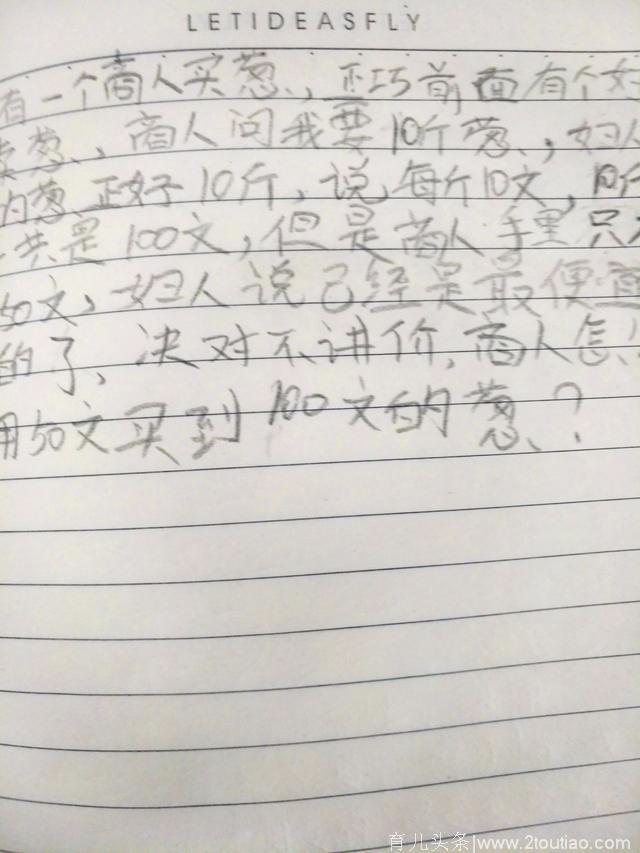 LETIDEASFLY
有一个商人买葱、正巧前面有个好
卖葱、商人问我要10斤葱、,妇人
的葱、正好10斤,说每斤10文,10斤
一共是100文,但是商人手里只有
50文,妇人说己经是最便宜
的了、决对不讲价,商人怎么
用50文买到100文的葱、?
育儿头条|www.2toutiao.com